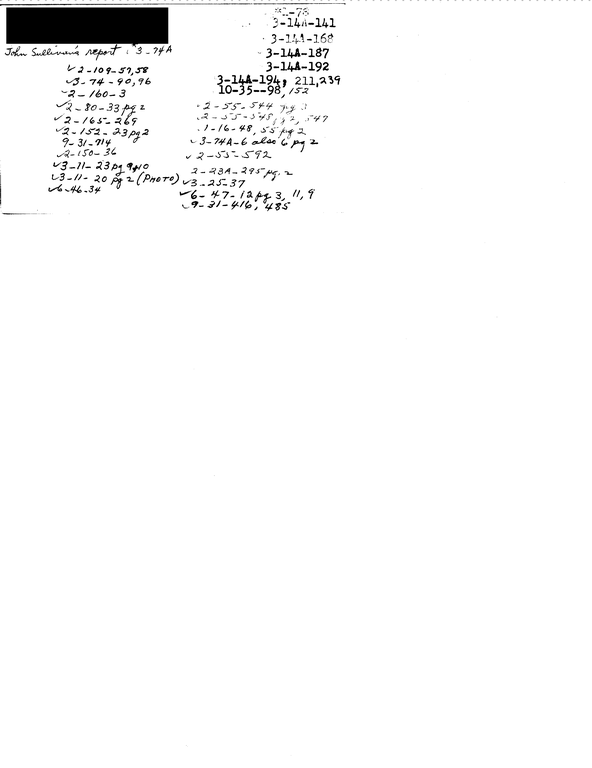 -78
3-14A-141
3-14A-168
John Sullivan's report : 3-74A
3-14A-187
3-14A-192
✓2-109-57,58
✓3-74-90,96
2-160-3
✓2-80-33 pg 2
✓2-165-269
✓2-152-23 pg 2
9-31-714
✓2-150-36
✓3-11-23 pg 9,10
✓3-11-20 pg 2 (PHOTO)
✓6-46-34
3-14A-194, 211,239
10-35--98, 152
2-55-544 pg 3
2-55-545, pg 2, 547
1-16-48, 55 pg 2
✓3-74A-6 also 6 pg 2
✓2-55-592
2-28A-295 pg. 2
✓3-25-37
✓6-47-12 pg 3, 11, 9
✓9-31-416, 485